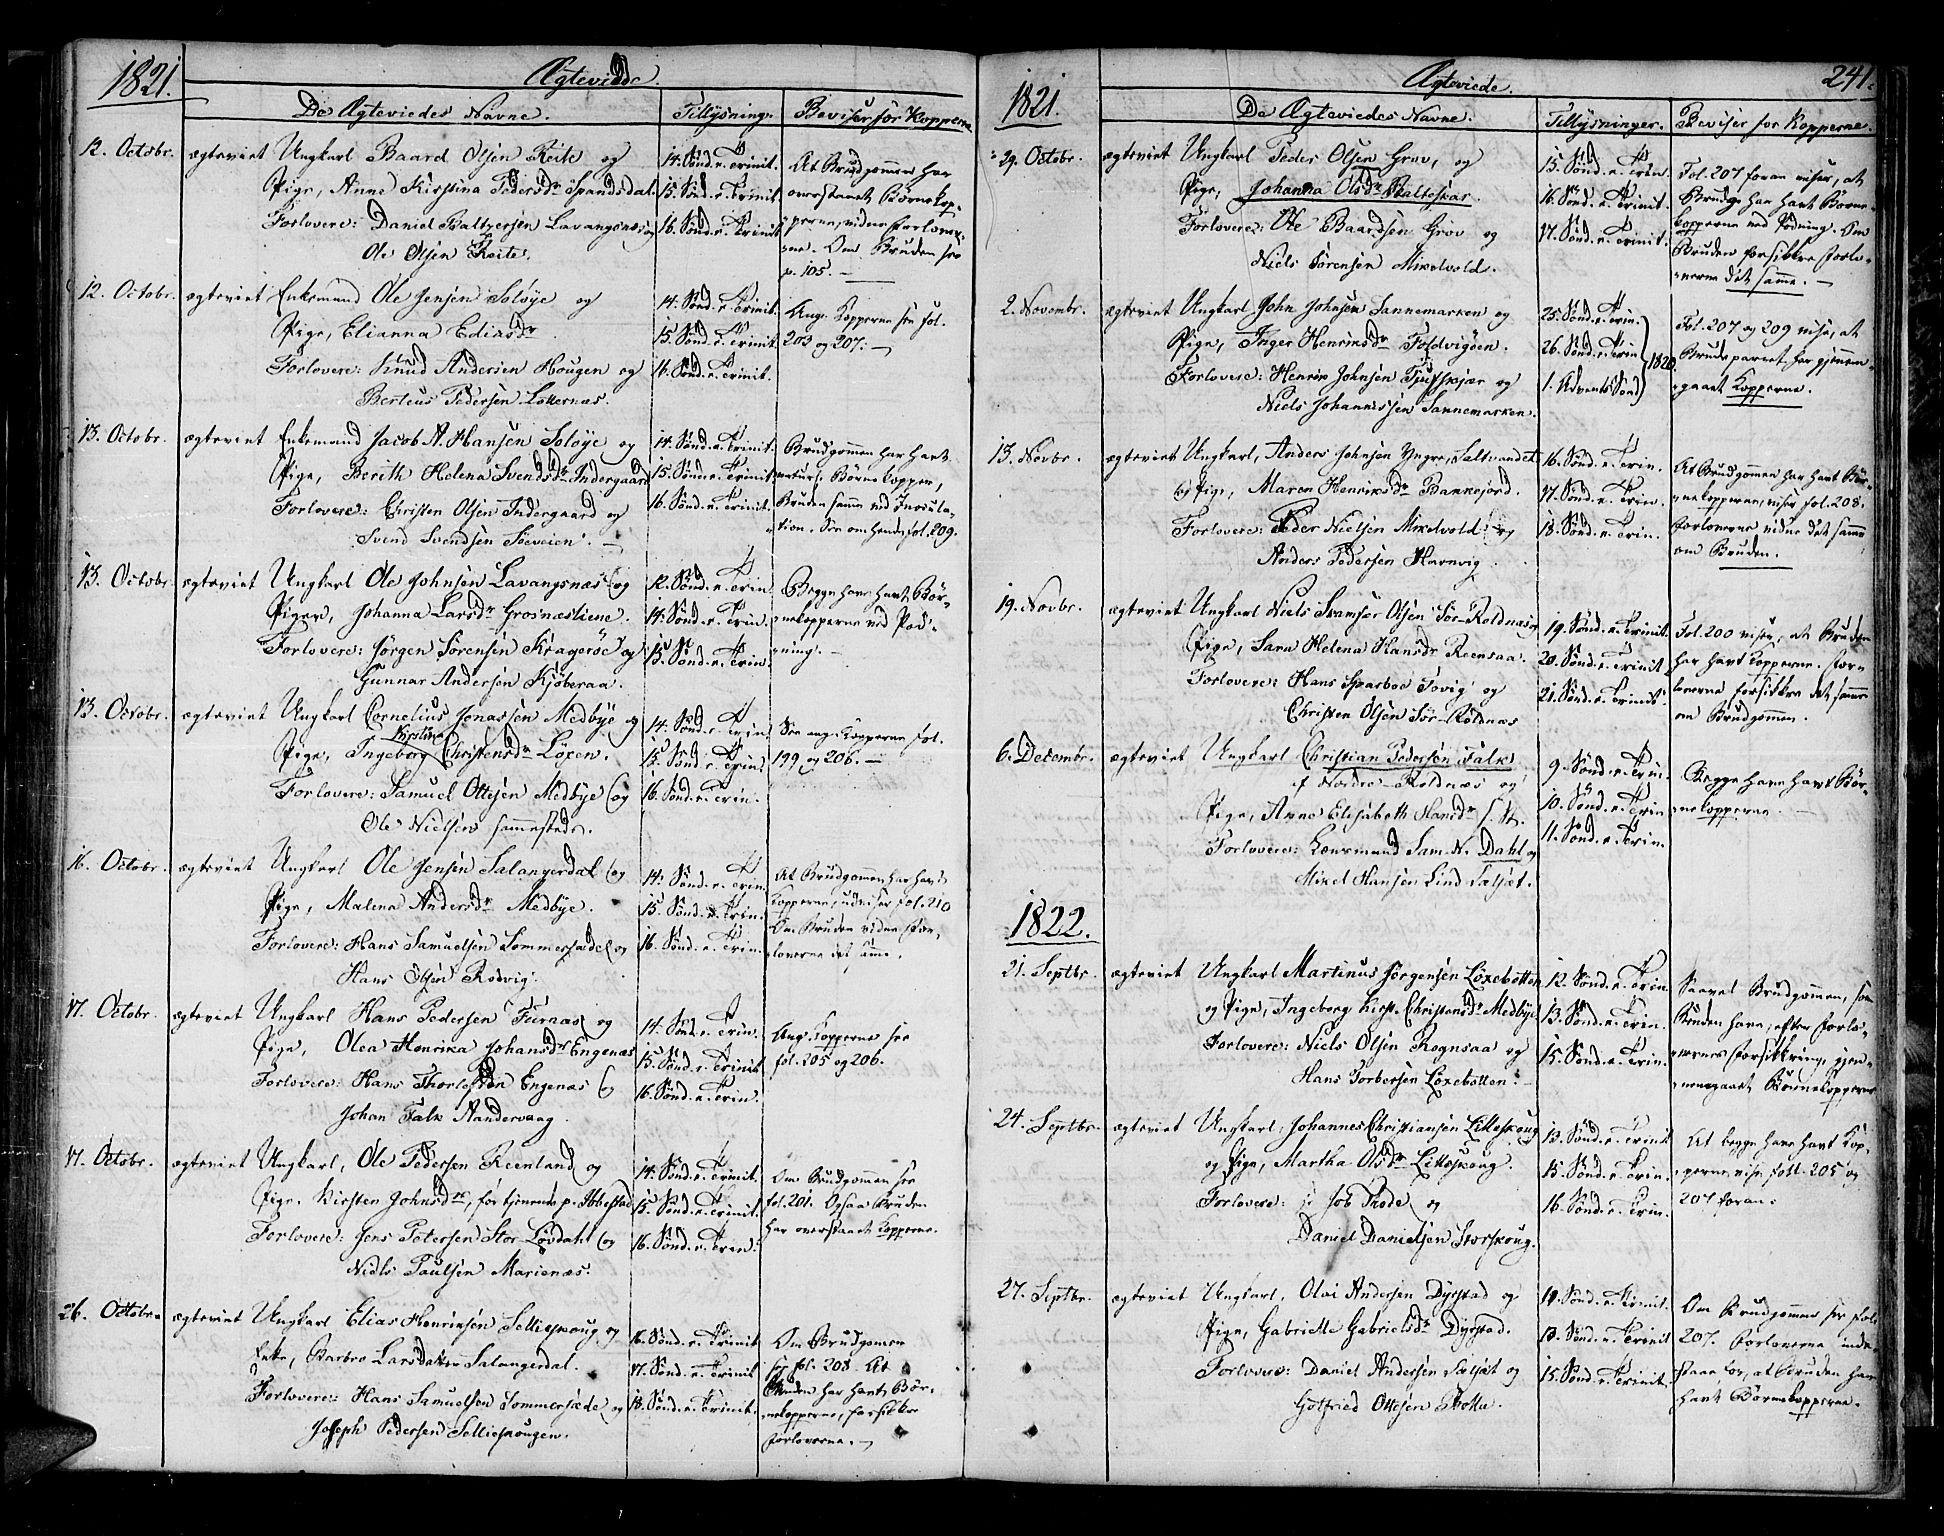 1821.
Ægteviede.
De Ægteviedes Navne.
Tillysning.
Beviser for Kopperne
12. Octobr. ægteviet Ungkarl Baard Olsen Reite og
Pige, Anne Kirstina Pedersdr Spandsdal.
Forlovere: Daniel Baltzersen Lavangsnæs og
Ole Olsen Reite.
14. Sönd. e. Trinit.
15. Sönd. e. Trinit.
16. Sönd. e. Trinit.
At Brudgommen har
overstaaet Børnekop-
perne, vidne Forlover-
ne. Om Bruden see
p. 105. —
12. Octobr. ægteviet Enkemand Ole Jensen Soløye og
Pige, Elianna Ediasdr
Forlovere: Knud Andersen Hougen og
Berteus Pedersen Lotternæs.
14. Sönd. e. Trinit.
15. Sönd. e. Trinit.
16. Sönd. e. Trinit.
Ang. Kopperne see fol.
203 og 207. —
13. Octobr. ægteviet Enkemand Jacob A. Hansen Soløye og
Pige, Berith Helena Svendsdr Indergaard
Forlovere: Christen Olsen Indergaard og
Svend Svendsen Söeveien. —
14. Sönd. e. Trinit.
15. Sönd. e. Trinit.
16. Sönd. e. Trinit.
Brudgommen har havt
naturl. Børnekopper,
Bruden samme ved Inocula-
tion. See om hende fol. 209.
13. Octobr. ægteviet Ungkarl Ole Johnsen Lavangsnæs og
Pigen, Johanna Larsdr Grosnæsliene.
Forlovere: Jørgen Sörensen Kragerøe og
Gunnar Andersen Kjøberaa.
12. Sönd. e. Trin.
14. Sönd. e. Trin.
15. Sönd. e. Trin.
Begge have havt Bör-
nekopperne ved Pod-
ning. —
13. Octobr. ægteviet Ungkarl Cornelius Jonassen Medbye og
Kirstina
Pige, Ingeborg Christensdr Löxen.
Forlovere: Samuel Ottesen Medbye og
Ole Nielsen sammesteds.
14. Sönd. e. Trin.
15. Sönd. e. Trin.
16. Sönd. e. Trin.
See ang. Kopperne fol.
199 og 206. —
16. Octobr. ægteviet Ungkarl Ole Jensen Salangerdal og
Pige, Malena Andersdr Medbye.
Forlovere: Hans Samuelsen Sommersædet og
Hans Olsen Rodvig.
14. Sönd. e. Trin.
15. Sönd. e. Trin.
16. Sönd. e. Trin.
At Brudgommen har havt
Kopperne, udviser fol. 210
Om Bruden vidne For-
loverne det samme.
17. Octobr. ægteviet Ungkarl Hans Pedersen Furnaas og
Pige, Olea Henrika Johansdr Engenæs
Forlovere: Hans Thorlefsen Engenæs og
Johan Falk Aandervaag.
14. Sönd. e. Trin.
15. Sönd. e. Trinit
16. Sönd. e. Trin.
Ang. Kopperne see
fol. 205 og 206.
17. Octobr. ægteviet Ungkarl, Ole Pedersen Reenland og
Pige, Kirsten Johnsdr, før tjenende p. Ibbestad
Forlovere: Jens Petersen Stor-Lövdahl og
Niels Paulsen Marienæs.
14. Sönd. e. Trinit.
15. Sönd. e. Trinit.
16. Sönd. e. Trin.
Om Brudgommen see
fol. 201. Ogsaa Bruden
har overstaaet Kopperne.
26. Octobr. ægteviet Ungkarl Elias Henriksen Selliescoug og
Enke, Barbro Larsdatter Salangerdal.
Forlovere: Hans Samuelsen Sommersæde og
Joseph Pedersen Selliescougen.
16. Sönd. e. Trinit
17. Sönd. e. Trinit
18. Sönd. e. Trinit.
Om Brudgommen
see fol. 208. At
Bruden har havt Bör-
nekopperne, forsikkre
Forloverne. —
241.
1821.
Ægteviede.
De Ægteviedes Navne.
Tillysninger.
Beviser for Kopperne.
29. Octobr. ægteviet Ungkarl Peder Olsen Grov, og
Pige, Johanna Olsdr Balteskar.
Forlovere: Ole Baardsen Grov og
Niels Sörensen Mikelvold.
15. Sönd. e. Trin.
16. Sönd. e. Trinit.
17. Sönd. e. Trinit.
Fol. 207 foran viser, at
Brudg. har havt Börne-
kopperne ved Podning. Om
Bruden forsikkre Forlo-
verne det samme. —
2. Novembr. ægteviet Ungkarl John Johnsen Sannemarken og
Pige, Inger Henriksdr Foldvigöen.
Forlovere: Henrik Johnsen Tjufskjær og
Niels Johannissen Sannemarken.
25. Sönd. e. Trin.
26. Sönd. e. Trin
1. Advents Sönd.
1820
Fol. 207 og 209 vise, at
Brudeparret har gjennem-
gaaet Kopperne.
13. Novbr. ægteviet Ungkarl, Anders Johnsen Yngre, Saltvandet
og Pige, Maren Henriksdr Bankefjord.
Forlovere: Peder Nielsen Mikelvold og
Anders Pedersen Havnvig.
16. Sönd. e. Trin.
17. Sönd. e. Trin.
18. Sönd. e. Trin.
At Brudgommen har havt Bör-
nekopperne, viser fol. 208.
Forloverne vidne det samme
om Bruden.
19. Novbr. ægteviet Ungkarl Niels Svamsøe Olsen Sör-Roldnæs og
Pige, Sara Helena Hansdr Reensaa.
Forlovere: Hans Sparboe Tovig og
Christen Olsen Sör-Roldnæs
19. Sönd. e. Trinit.
20. Sönd. e. Trinit
21. Sönd. e. Trinit.
Fol. 200 viser, at Bruden
har havt Kopperne. For-
loverne forsikkre det samme
om Brudgommen.
6. Decembr. ægteviet Ungkarl Christian Pedersen Falk
f Nordre-Roldnæs og
Pige, Anne Elisabeth Hansdr S. St.
Forlovere: Lensmand Sam. N. Dahl og
Mikel Hansen Lind Sæljet.
9. Sönd. e. Trin.
10. Sönd. e. Trin
11. Sönd. e. Trin.
Begge have havt Bör-
nekopperne. —
1822.
21. Septbr. ægteviet Ungkarl Martinus Jörgensen Löxebotten
og Pige, Ingeborg Kirst. Christensdr Medbye
Forlovere: Niels Olsen Rognsaa og
Hans Torbersen Löxebotten. —
12. Sönd. e. Trin.
13. Sönd. e. Trin.
15. Sönd. e. Trin.
Saavel Brudgommen, som
Bruden have, efter Forlo-
vernes Forsikkring, gjen-
nemgaaet Börnekopperne
24. Septbr. ægteviet Ungkarl, Johannes Christiansen Lilleskoug
og Pige, Martha Olsdr Lilleskoug.
Forlovere: Job Trode og
Daniel Danielsen Storskoug.
13. Sönd. e. Trinit
15. Sönd. e. Trin.
16. Sönd. e. Trin.
At begge have havt Kop-
perne, vise foll. 205 og
207 foran.
27. Septbr. ægteviet Ungkarl, Olai Andersen Dyrstad og
Pige, Gabrielle Gabrielsdr Dyrstad.
Forlovere: Daniel Andersen Sæljet og
Gotfried Ottesen Skotta.
10. Sönd. e. Trinit.
13. Sönd. e. Trinit
15. Sönd. e. Trinit.
Om Brudgommen see fol.
207. Forloverne inde-
staae for, at Bruden har
havt Börnekopperne.